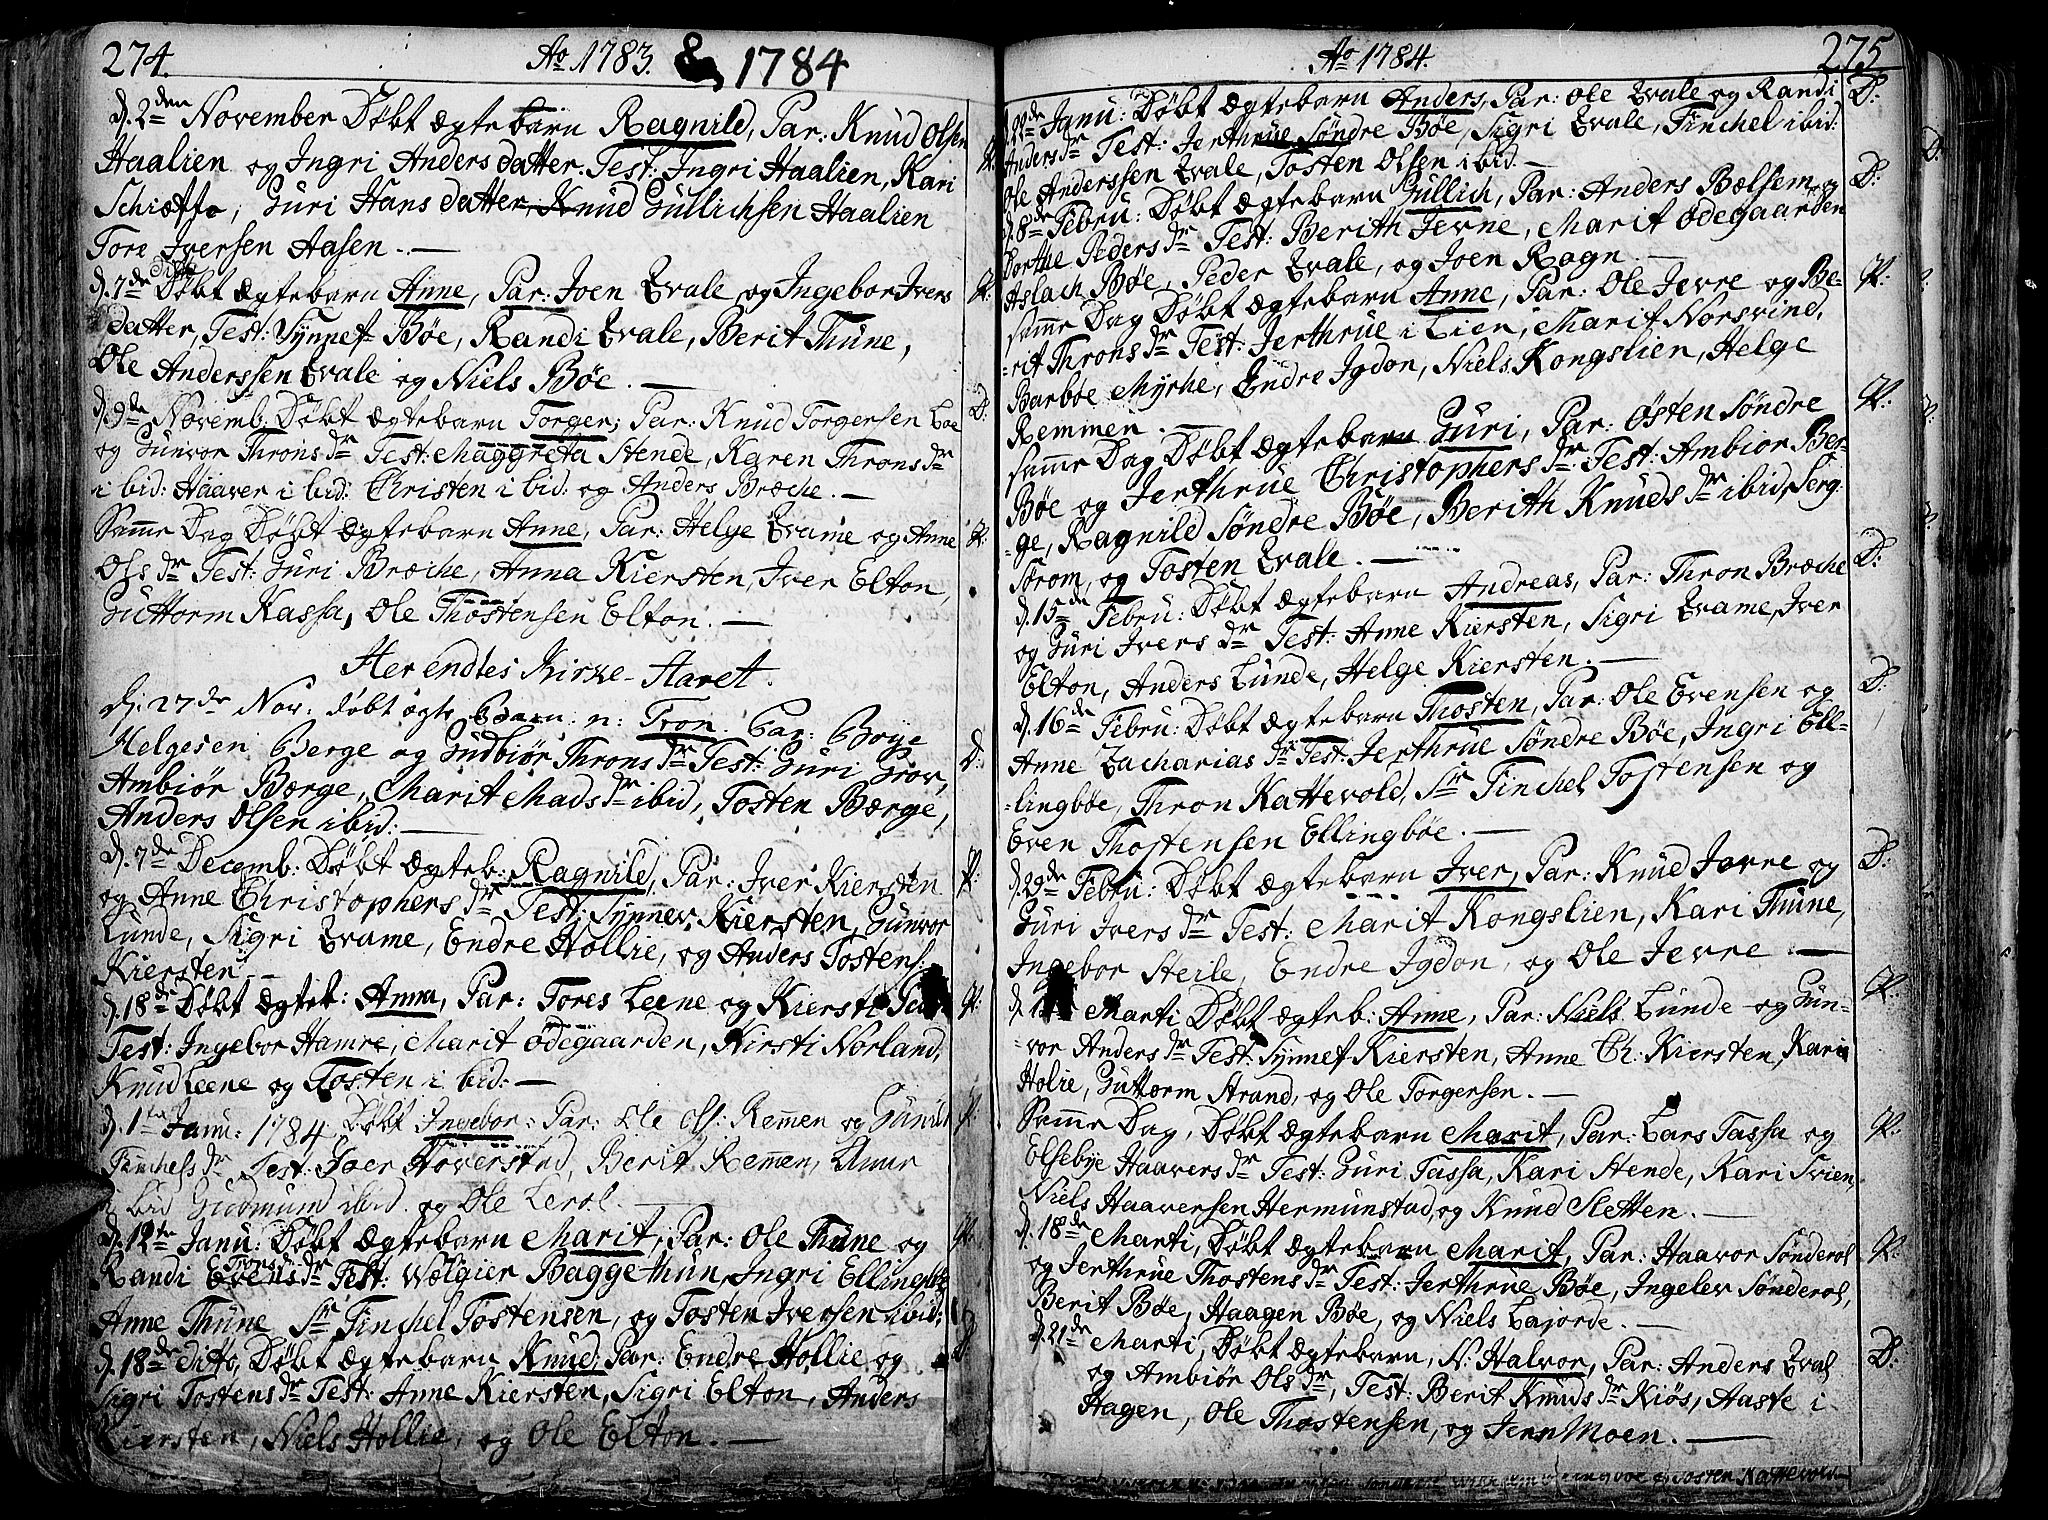 274.
Ao 1783. & 1784
d. 2den November Døbt ægtebarn Ragnild, Par: Knud Olsen
Haalien og Ingri Anders datter. Test: Ingri Haalien, Kari
Schieffe, Guri Hans datter, Knud Gullichsen Haalien
Tore Iversen Aasen. —
d. 7de Dito Døbt ægtebarn Anne, Par: Joen Qvale og Ingebor Ivers
datter, Test: Synnef Bøe, Randi Qvale, Berit Thune,
Ole Anderssen Qvale og Niels Bøe. —
d. 9de Novemb. Døbt ægtebarn Torger, Par: Knud Torgersen Loe
og Gunvor Throns dr Test: Maggreta Stende, Karen Throns dr
ibid: Haaver ibid: Christen ibid: og Anders Bræche. —
Samme Dag Døbt ægtebarn Anne, Par: Helge Qvame og Anne
Ols dr Test: Guri Bræche, Anna Kiersten, Iver Elton,
Guttorm Kassa, Ole Thostensen Elton. —
Her endtes Kirke-Aaret.
d. 27de Nov: døbt ægte Barn n: Tron. Par: Boye
Helgesen Berge og Gudbiør Throns dr Test: Guri Grov,
Ambiør Bærge, Marit Mads dr ibid, Tosten Bærge,
Anders Olsen ibid: —
d. 7de Decemb: Døbt ægteb: Ragnild, Par: Iver Kiersten
og Anne Christophers dr Test: Synnev Kiersten, Gunvor
Lunde, Sigri Qvame, Endre Hollie, og Anders Tostens:
Kiersten —
d. 18de Døbt ægteb: Anna, Par: Tores Leene og Kiersti
Test: Ingebor Hamre, Marit Ødegaarden, Kirsti Norland,
Knud Leene og Tosten ibid: —
d. 1ta Janu: 1784 Døbt Ingebor: Par: Ole Ols: Remmen og
Finchels dr Test: Joer Hoverstad, Berit Remmen, Anne
ibid Gudmund ibid og Ole Lerol. —
d. 12te Janu: Døbt ægtebarn Marit, Par: Ole Thune og
Randi Evens dr Test: Wælgier Baggethun, Ingri Ellingbøe
Anne Thune Sr Finchel Tostensen, og Tosten Iversen ibid:
d. 18de dito, Døbt ægtebarn Knud, Par: Endre Hollie og
Sigri Tostens dr Test: Anne Kiersten, Sigri Elton, Anders
Kiersten, Niels Hollie, og Ole Elton. —
Ao 1784.
275
d. 22de Janu: Døbt ægtebarn Anders, Par: Ole Qvale og Randi
Anders dr Test: Jerthrue Søndre Bøe, Sigri Qvale, Finchel ibid:
Ole Anderssen Qvale, Tosten Olsen ibid. —
d. 8de Febru: Døbt ægtebarn Gullich, Par: Anders Bælsem og
Dorthe Peders dr Test: Berith Jevne, Marit Ødegaarden
Aslach Bøe, Peder Qvale, og Joen Rogn. —
samme Dag Døbt ægtebarn Anne, Par: Ole Jevre og Be-
-rit Throns dr Test: Jerthrue i Lien, Marit Norsvind,
Barbøe Myrhe, Endre Igdon, Niels Kongslien, Helge
Remmen. —
samme Dag Døbt ægtebarn Guri, Par: Østen Søndre
Bøe og Jerthrue Christophers dr. Test: Ambior Ber-
-ge, Ragnild Søndre Bøe, Berith Knuds dr ibid, Serg:
Strøm, og Tosten Qvale. —
d. 15de Febru: Døbt ægtebarn Andreas, Par: Thron Bræche
og Guri Ivers dr Test: Anne Kiersten, Sigri Qvame, Iver
Elton, Anders Lunde, Helge Kiersten. —
d. 16de Febru: Døbt ægtebarn Thosten, Par: Ole Evensen og
Anne Zacharias dr Test: Jerthrue Søndre Bøe, Ingri Ell-
-lingbøe, Thron Kattevold, Sr Finchel Tostensen og
Even Thostensen Ellingbøe. —
d. 29de Febru: Døbt ægtebarn Iver, Par: Knud Jevre og
Guri Ivers dr Test: Marit Kongslien, Kari Thune,
Ingebor Steile, Endre Igdon, og Ole Jevre. —
Marti, Døbt ægteb: Anne, Par: Niels Lunde og Gun-
-vor Anders dr Test: Synnef Kiersten, Anne Ch: Kiersten, Kari
Holie, Guttorm Strand, og Ole Torgersen. —
Samme Dag, Døbt ægtebarn Marit, Par: Lars Tassa og
Elsebye Haavers dr Test: Guri Tassa, Kari Stende, Kari Svien,
Niels Haaversen Hermunstad, og Knud Sletten. —
d. 18de Marti, Døbt ægtebarn Marit, Par: Haavor Sønderol
og Jerthrue Thostens dr Test: Jerthrue Bøe, Ingelev Sønderol,
Berit Bøe, Haagen Bøe, og Niels Lajorde. —
d. 21de Marti, Døbt ægtebarn, N: Halvor, Par: Anders Qval
og Ambiør Ols dr, Test: Berit Knuds dr Kiøs, Aaste i
Hagen, Ole Thostensen, og Jern Moen. —
og Tosten Kattevold